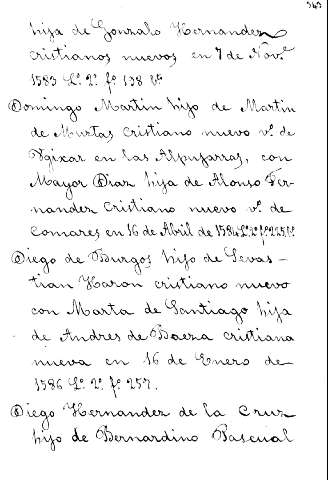 343
hija de Gonzalo Hernandez
cristianos nuevos en 7 de Nov.e
1583 L.o 2.o f.o 138 v.to
Domingo Martin hijo de Martin
de Murtas cristiano nuevo v.o de
Ugixar en las Alpujarras, con
Mayor Diaz hija de Alonso Fer-
nandez cristiano nuevo v.o de
Comares en 16 de Abril de 1584 L.o 2.o f.o 225 v.to
Diego de Burgos hijo de Sevas-
tian Haron cristiano nuevo
con Marta de Santiago hija
de Andres de Baeza cristiana
nueva en 16 de Enero de
1586 L.o 2.o f.o 257.
Diego Hernandez de la Cruz
hijo de Bernardino Pascual